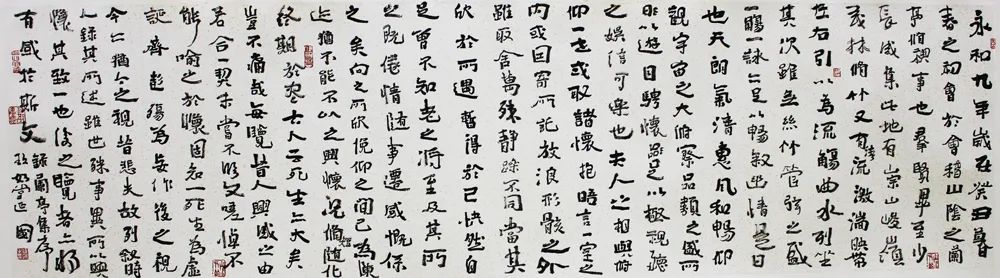 永和九年歲在癸丑暮
春之初會於會稽山陰之蘭
亭脩禊事也羣賢畢至少
長咸集此地有崇山峻嶺
茂林脩竹又有清流激湍映帶
左右引以為流觴曲水列坐
其次雖無絲竹管弦之盛
一觴一詠亦足以暢敘幽情是日
也天朗氣清惠風和暢仰
觀宇宙之大俯察品類之盛所
以遊目騁懷足以極視聽
之娛信可樂也夫人之相與俯
仰一世或取諸懷抱晤言一室之
內或因寄所託放浪形骸之外
雖取舍萬殊靜躁不同當其
欣於所遇暫得於己快然自
足曾不知老之將至及其所
之既倦情隨事遷感慨係
之矣向之所欣俛仰之間已為陳
迹猶不能不以之興懷況脩短隨化
終期於盡古人云死生亦大矣
豈不痛哉每覽昔人興感之由
若合一契未嘗不臨文嗟悼不
能喻之於懷固知一死生為虛
誕齊彭殤為妄作後之視
今亦猶今之視昔悲夫故列敘時
人錄其所述雖世殊事異所以興
懷其致一也後之覽者亦將
有感於斯文
錄蘭亭集序
國